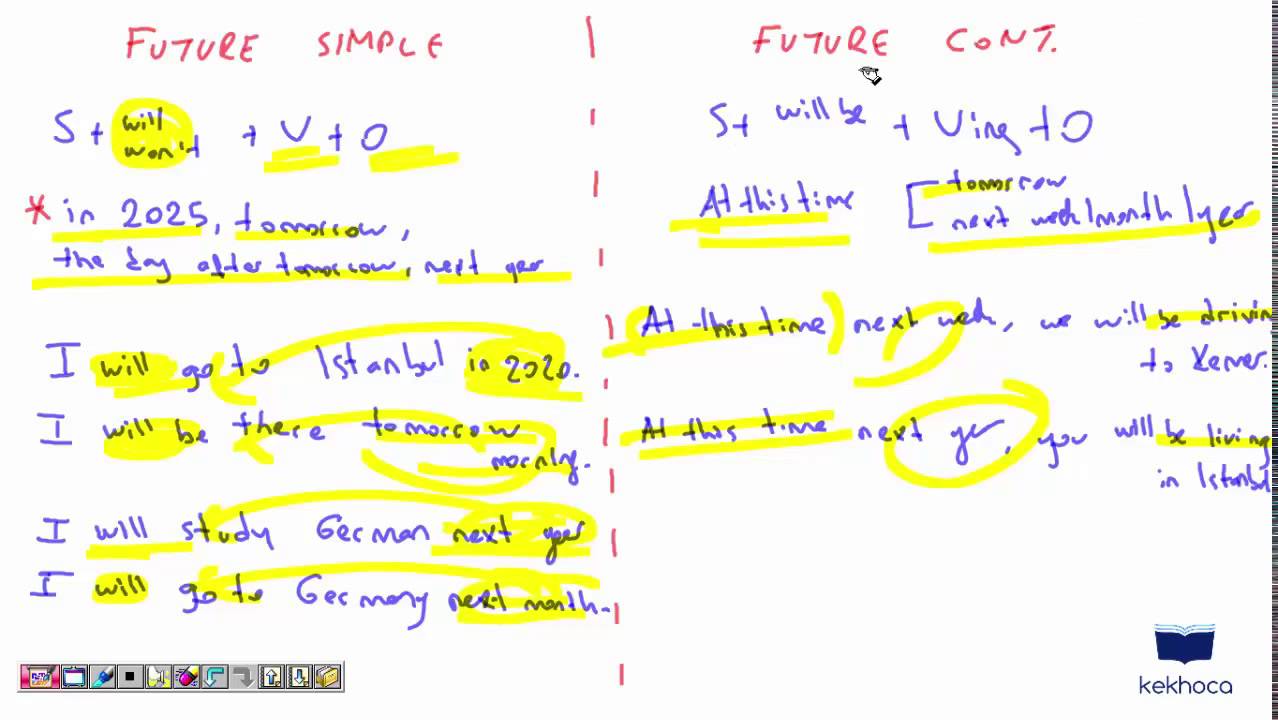 FUTURE SIMPLE
S + will
won't + V + O
* in 2025, tomorrow,
the day after tomorrow, next year
I will go to Istanbul in 2020.
I will be there tomorrow
morning.
I will study German next year
I will go to Germany next month.
FUTURE CONT.
S+ will be + Ving + O
At this time [ tomorrow
next week/month/year
At this time next week, we will be drivin
to Kemer.
At this time next year, you will be living
in Istanbul
kekhoca